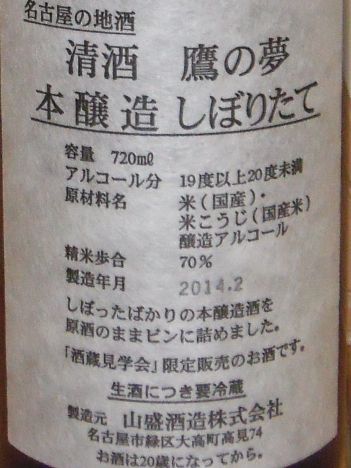 名古屋の地酒
清酒 鷹の夢
本醸造 しぼりたて
容量 720㎖
アルコール分 19度以上20度未満
原材料名 米(国産)・
米こうじ(国産米)
醸造アルコール
精米歩合 70%
製造年月 2014.2
しぼったばかりの本醸造酒を
原酒のままビンに詰めました。
「酒蔵見学会」限定販売のお酒です。
生酒につき要冷蔵
製造元 山盛酒造株式会社
名古屋市緑区大高町高見74
お酒は20歳になってから。